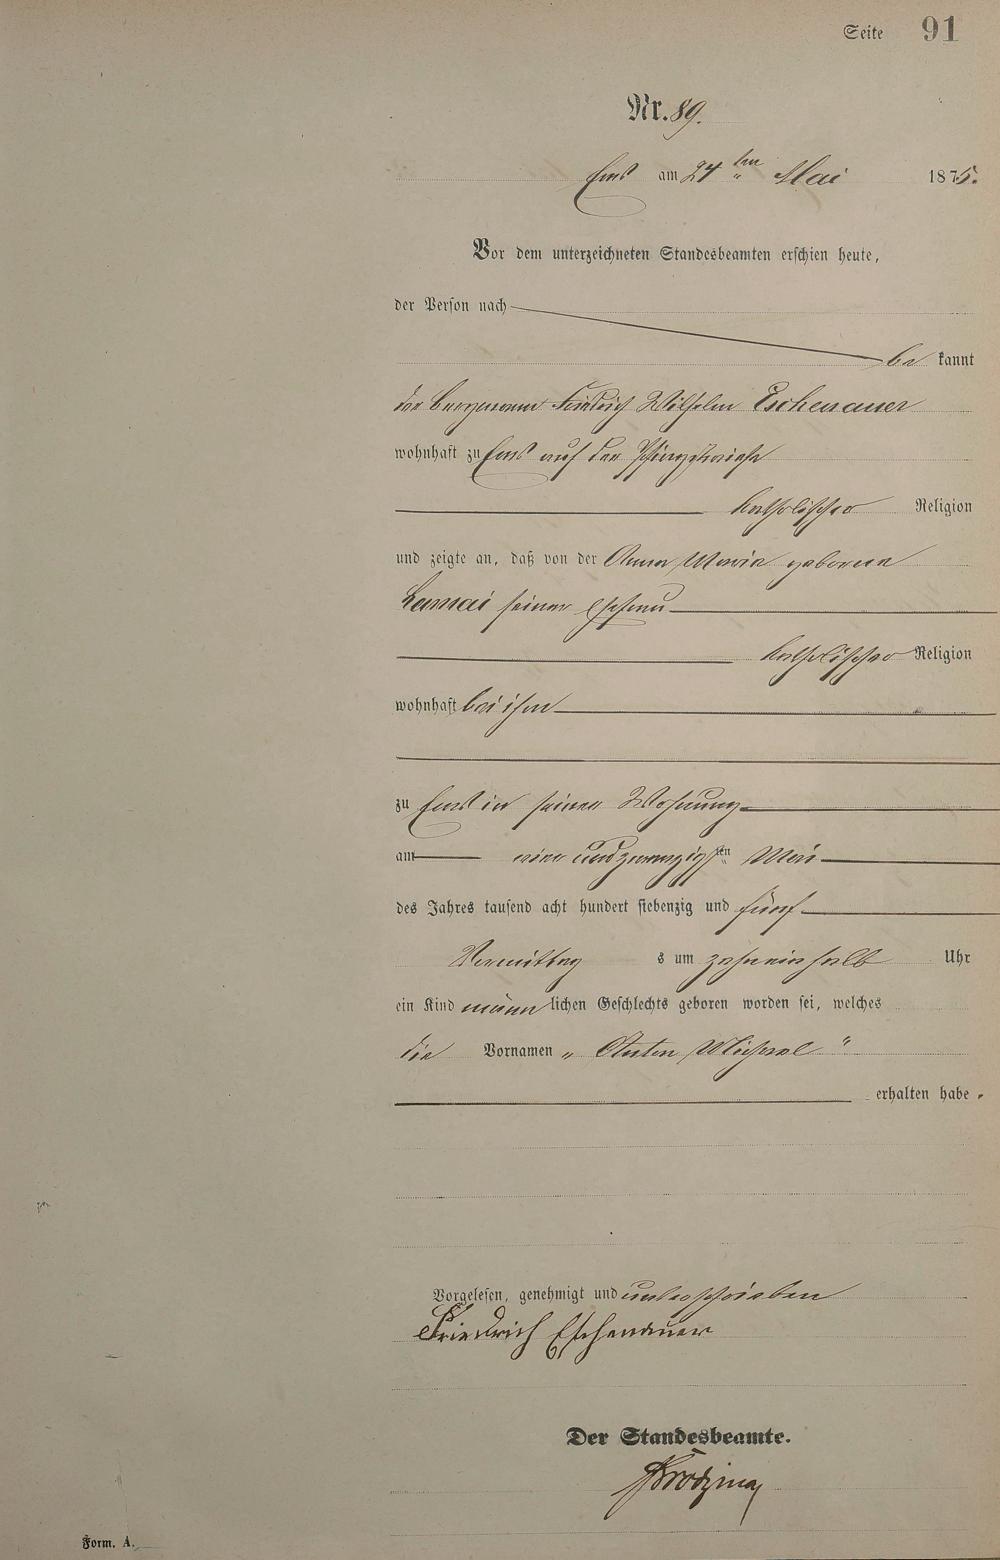 Seite 91
Nr. 89.
Ems am 24ten Mai 1875.
Vor dem unterzeichneten Standesbeamten erschien heute,
der Person nach
be kannt
der Bergmann Friedrich Wilhelm Eschenauer
wohnhaft zu Ems auf der Pfingstwiese
katholischer Religion
und zeigte an, daß von der Anna Maria geborene
Lamai seiner Ehefrau
katholischer Religion
wohnhaft bei ihm
zu Ems in seiner Wohnung
am ein und zwanzigsten Mai
des Jahres tausend acht hundert siebenzig und fünf
Vormittag s um zehneinhalb Uhr
ein Kind männ lichen Geschlechts geboren worden sei, welches
die Vornamen „ Anton Michael "
erhalten habe.
Vorgelesen, genehmigt und unterschrieben
Friedrich Eschenauer
Der Standesbeamte.
Form. A.